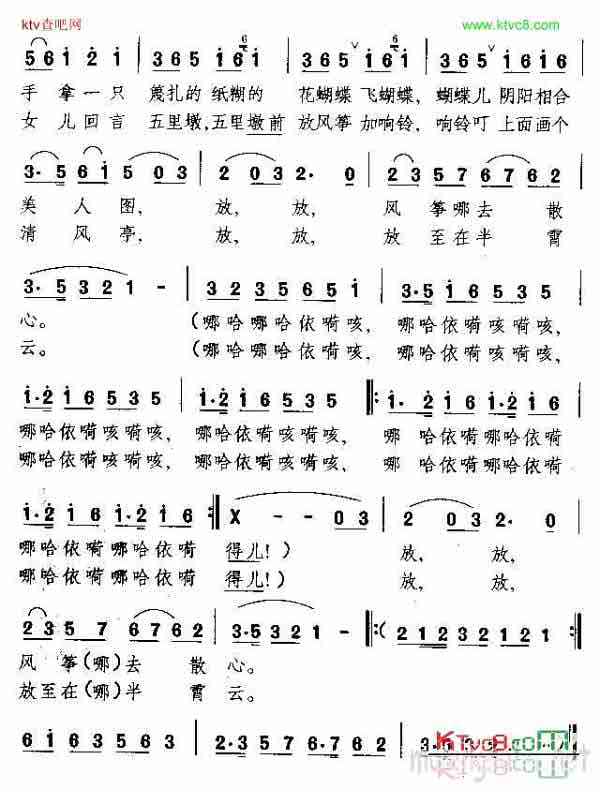 ktv查吧网
www.ktvc8.com
5 6 1 2 1 3 6 5 1 6 5 3 6 5 1 6 6 1 3 6 5 1 6 1 6
手拿一只 篾扎的 纸糊的 花蝴蝶 飞蝴蝶, 蝴蝶儿 阴阳相合
女儿回言 五里墩,五里墩前 放风筝 加响铃, 响铃叮 上面画个
3· 5 6 1 5 0 3 2 0 3 2· 0 2 3 5 7 6 7 6 2
美人图, 放, 放, 风筝哪去散
清风亭, 放, 放, 放至在半霄
3· 5 3 2 1 - 3 2 3 5 6 5 1 2· 3 2 1 6 5 3 5
心。 (哪哈哪哈依嗬咳, 哪哈依嗬咳嗬咳,
云。 (哪哈哪哈依嗬咳, 哪哈依嗬咳嗬咳,
1·2 1 6 5 3 5 1·2 1 6 5 3 5 1·2 1 6 1·2 1 6
哪哈依嗬咳嗬咳, 哪哈依嗬咳嗬咳, 哪哈依嗬哪哈依嗬
哪哈依嗬咳嗬咳, 哪哈依嗬咳嗬咳, 哪哈依嗬哪哈依嗬
1·2 1 6 1·2 1 6 X - - 0 3 2 0 3 2· 0
哪哈依嗬哪哈依嗬 得儿!) 放, 放,
哪哈依嗬哪哈依嗬 得儿!) 放, 放,
2 3 5 7 6 7 6 2 3· 5 3 2 1 - ( 2 1 2 3 2 1 2 1
风筝(哪)去散心。
放至在(哪)半霄云。
6 1 6 3 5 6 3 5 2·3 5 7 6·7 6 2 3·5
KTvc8.com